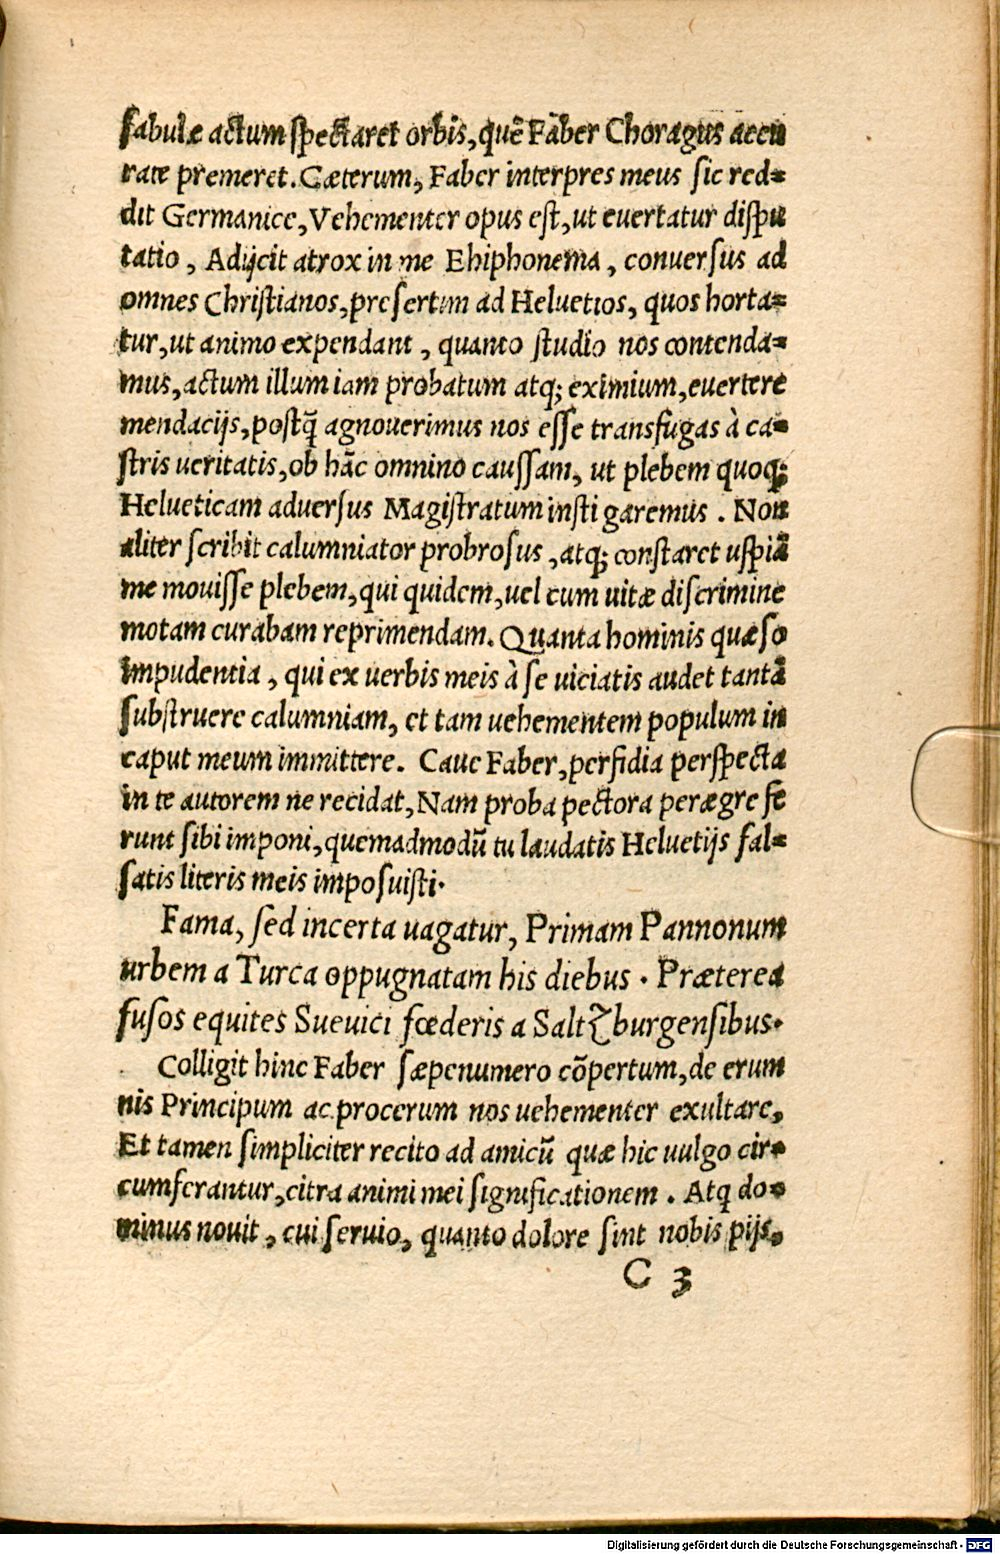 fabulæ actum spectaret orbis, quẽ Faber Choragus accu
rate premeret. Cæterum, Faber interpres meus sic red=
dit Germanice, Vehementer opus est, ut euertatur dispu
tatio, Adijcit atrox in me Ehiphonema, conuersus ad
omnes Christianos, presertim ad Heluetios, quos horta=
tur, ut animo expendant, quanto studio nos contenda=
mus, actum illum iam probatum atq; eximium, euertere
mendacijs, postq̃ agnouerimus nos esse transfugas à ca=
stris ueritatis, ob hãc omnino caussam, ut plebem quoq;
Helueticam aduersus Magistratum insti garemus. Non
aliter scribit calumniator probrosus, atq; constaret uspiã
me mouisse plebem, qui quidem, uel cum uitæ discrimine
motam curabam reprimendam. Quanta hominis quæso
impudentia, qui ex uerbis meis à se uiciatis audet tantã
substruere calumniam, et tam uehementem populum in
caput meum immittere. Caue Faber, perfidia perspecta
in te autorem ne recidat, Nam proba pectora peræegre fe
runt sibi imponi, quemadmodũ tu laudatis Heluetijs fal=
satis literis meis imposuisti.
Fama, sed incerta uagatur, Primam Pannonum
urbem a Turca oppugnatam his diebus. Præterea
fusos equites Sueuici fœderis a Saltzburgensibus.
Colligit hinc Faber sæpenumero cõpertum, de erum
nis Principum ac procerum nos uehementer exultare,
Et tamen simpliciter recito ad amicũ quæ hic uulgo cir=
cumferantur, citra animi mei significationem. Atq do=
minus nouit, cui seruio, quanto dolore sint nobis pijs,
C 3
Digitalisierung gefördert durch die Deutsche Forschungsgemeinschaft - DFG